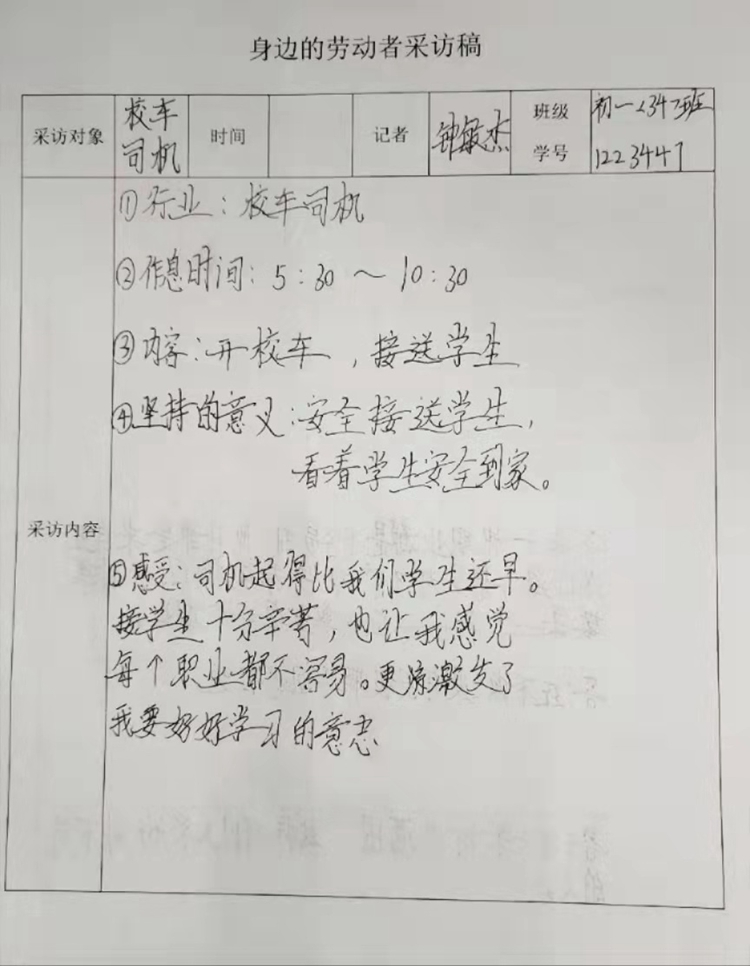 身边的劳动者采访稿
采访对象 校车司机 时间 记者 钟敏杰 班级 初一234班
学号 1223447
①行业：校车司机
②作息时间：5:30～10:30
③内容：开校车，接送学生
④坚持的意义：安全接送学生，
看着学生安全到家。
采访内容
⑤感受：司机起得比我们学生还早。
接学生十分辛苦，也让我感觉
每个职业都不容易。更激发了
我要好好学习的意志